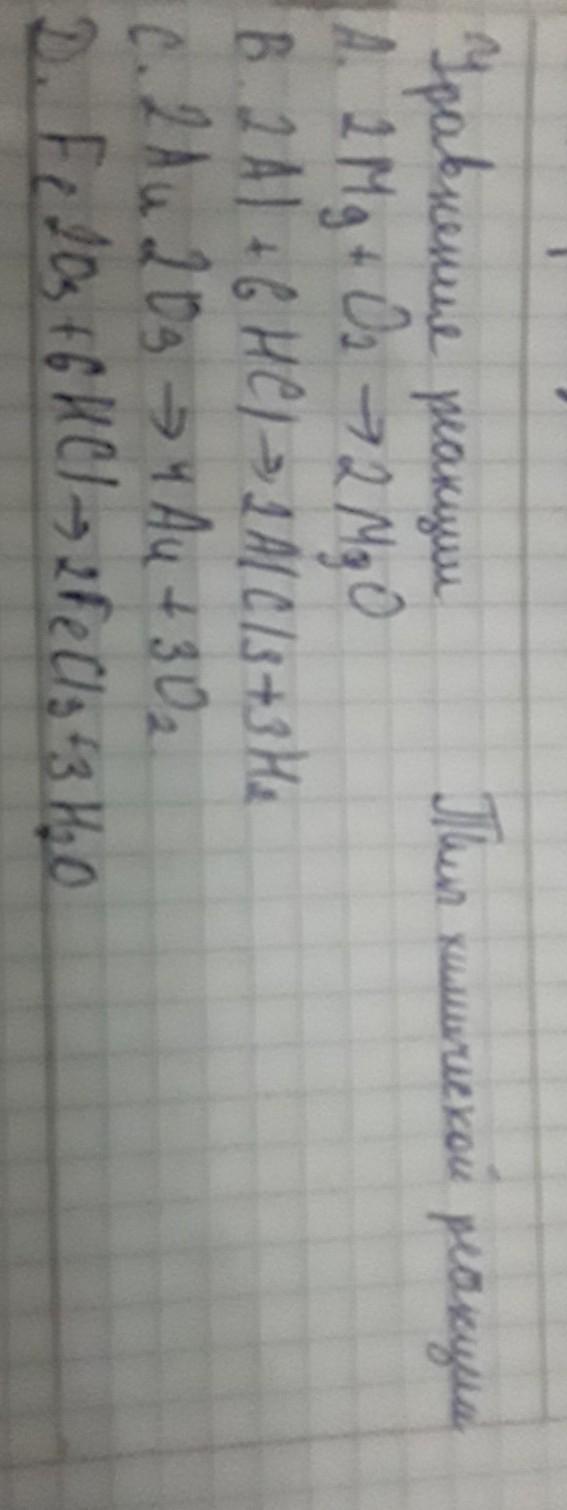 Уравнение реакции Тип химической реакции
A. 2Mg + O2 → 2MgO
B. 2Al + 6HCl → 2AlCl3 + 3H2
C. 2Au2O3 → 4Au + 3O2
D. Fe2O3 + 6HCl → 2FeCl3 + 3H2O